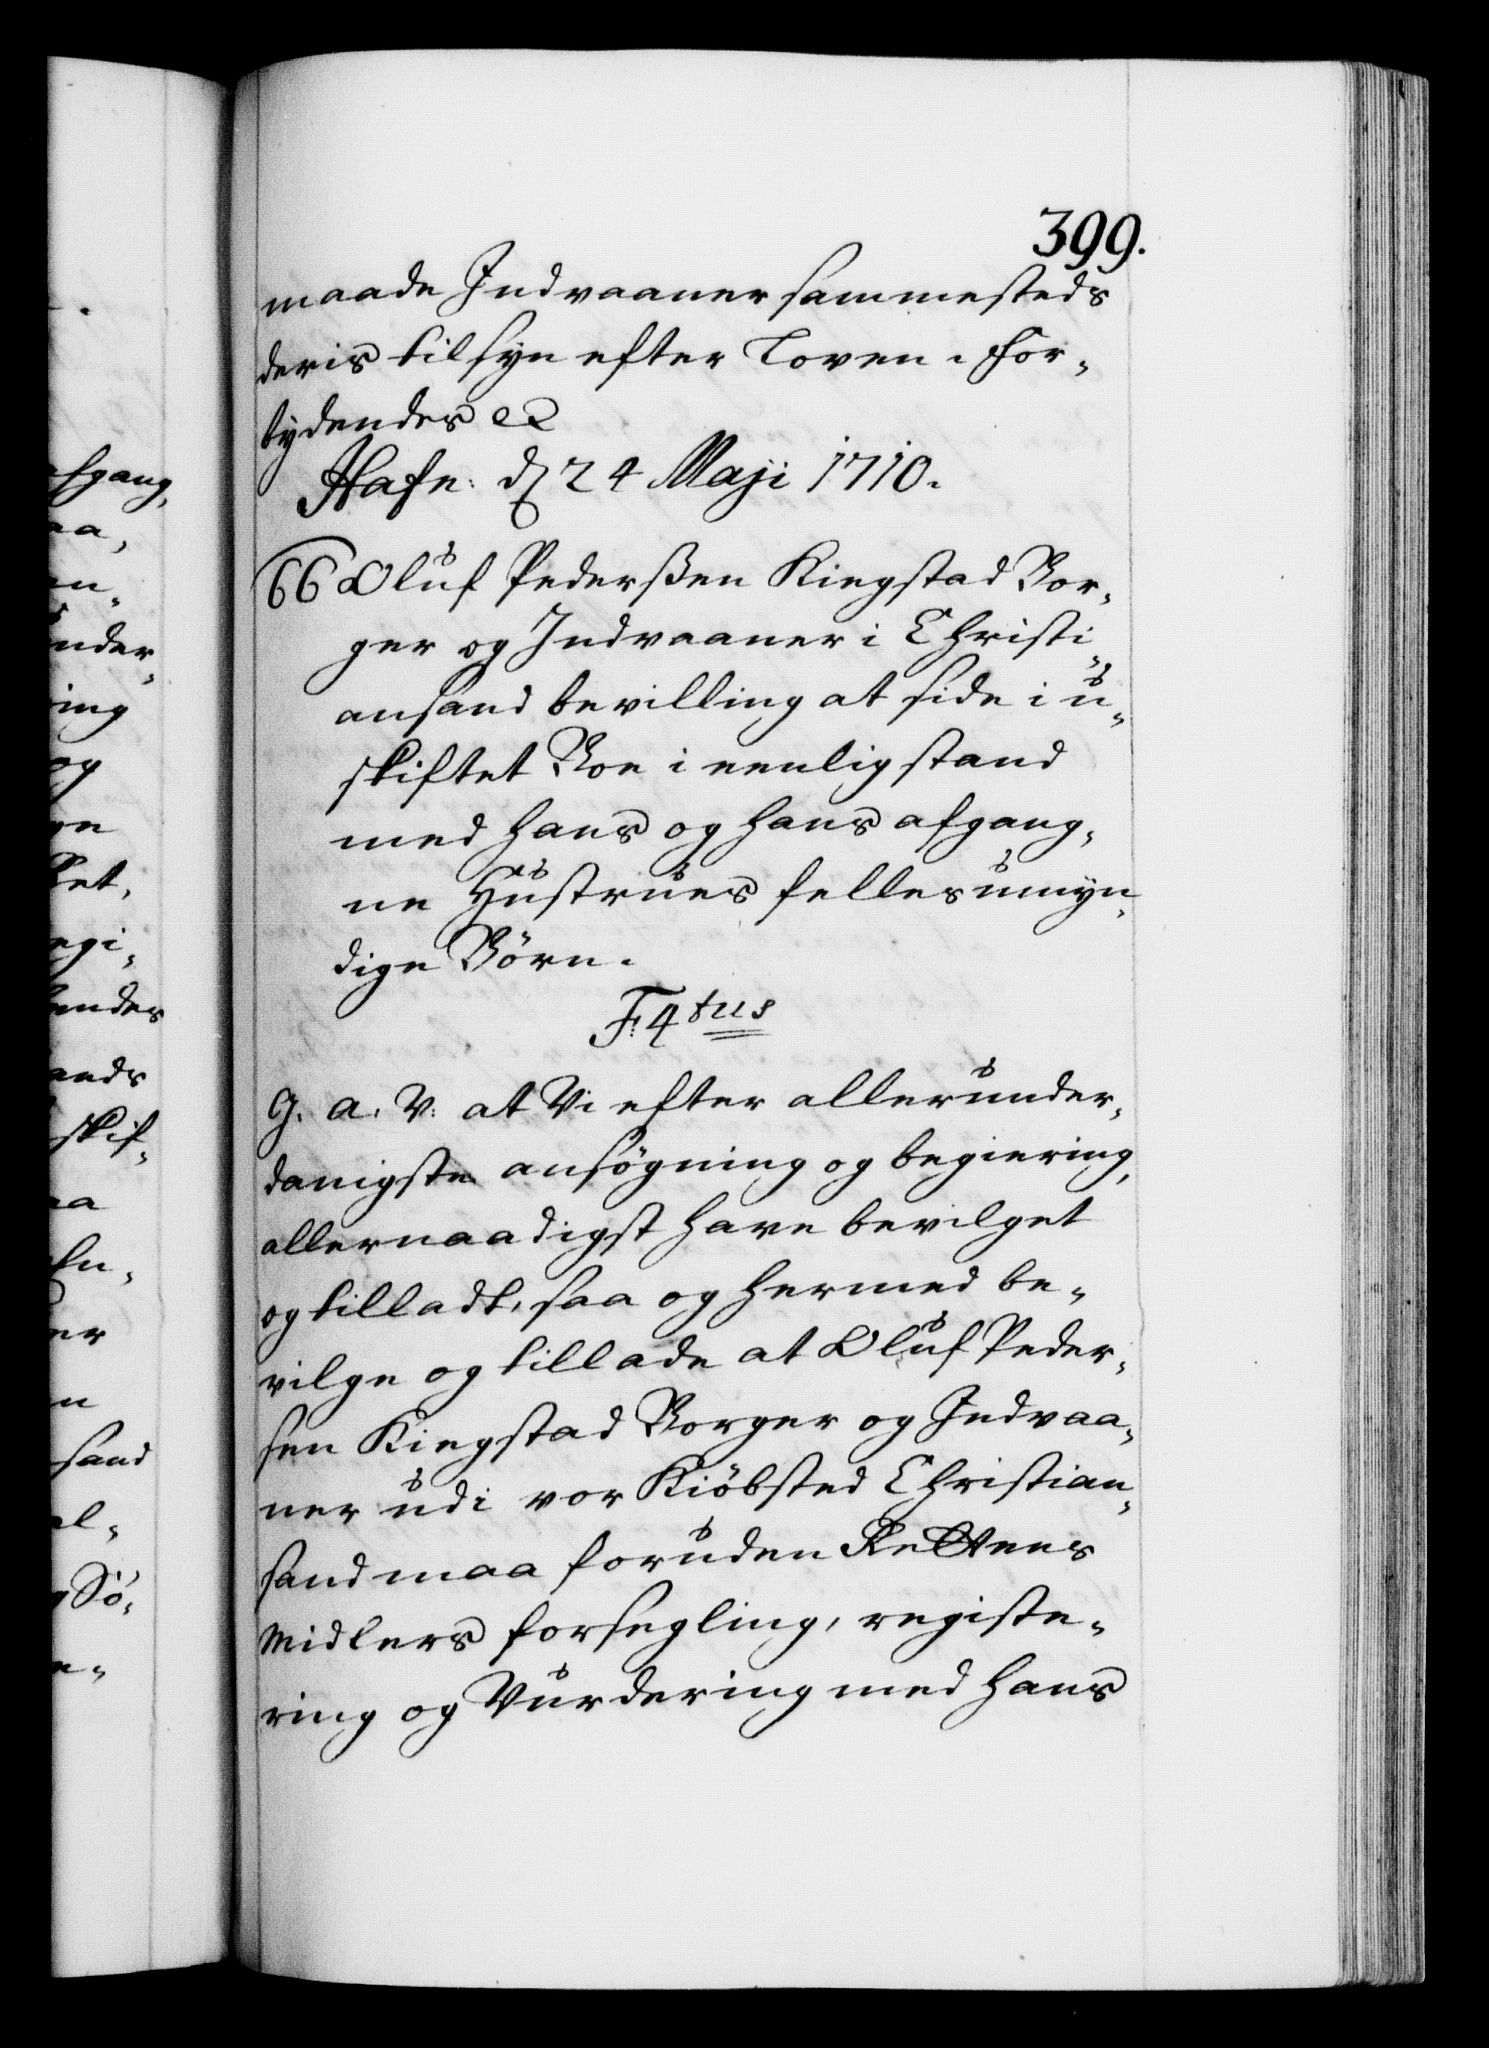 399.
maade Indvaaner sammesteds
deris tilsyn efter Loven. For-
bydendes etc
Hafn: d 24 Maji 1710.
66 Oluf Pederßen Kingstad Bor-
ger og Indvaaner i Christi-
ansand bevilling at side i u-
skiftet Boe i eenlig stand
med hans og hans afgang-
ne Hustrues felles umyn-
dige Börn.
F: 4tus
G. a. V: at Vi efter allerunder-
danigste ansøgning og begiering,
allernaadigst have bevilget
og tilladt, saa og hermed be-
vilge og tillade at Oluf Peder-
sen Kingstad Borger og Indvaa-
ner udi vor Kiöbsted Christian-
sand maa foruden Rettens
Midlers forsegling, registe-
ring og Vurdering med hans